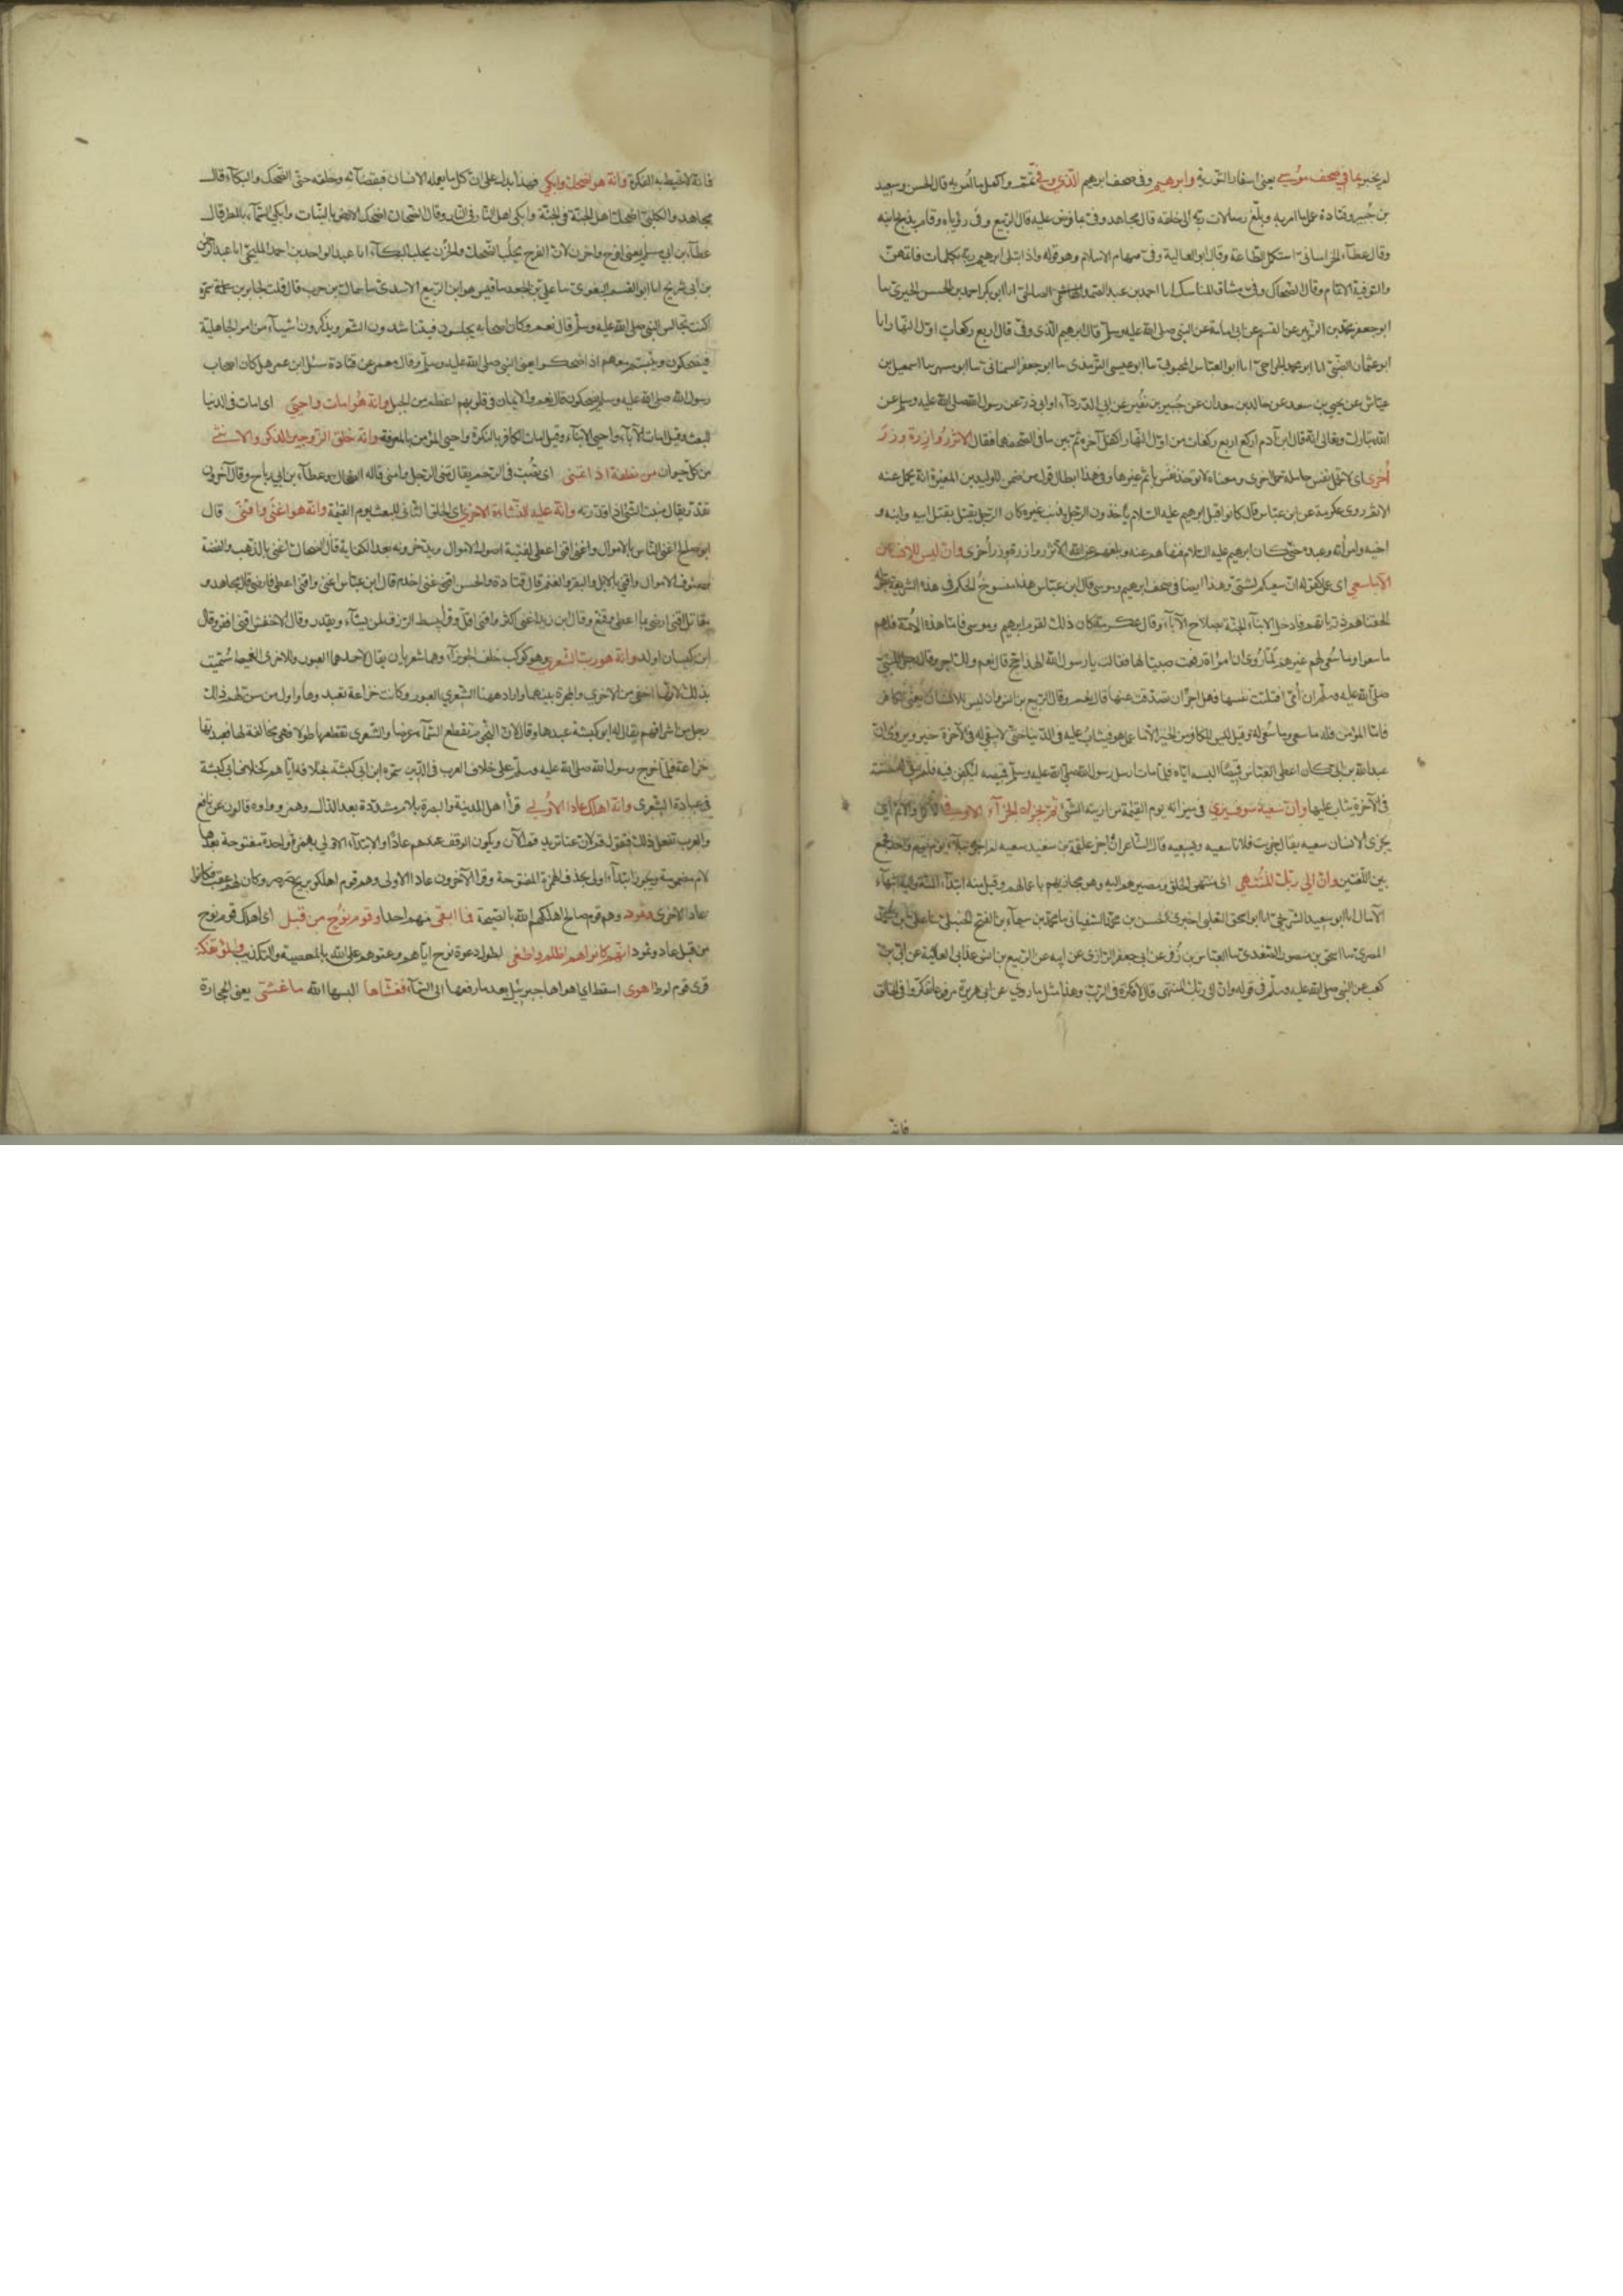 لم يخبر بما في صحف موسى يعني اسفار التورية وابرهيم وفي صحف ابرهيم الذي وفى تمم واكمل ما امر به قال الحسن وسعيد
بن جبير وقتادة عمل بما امر به وبلغ رسالات ربه الى خلقه قال مجاهد وفى بما فرض عليه قال الربيع وفى رؤياه وقام بذبح ابنه
وقال عطاء الخراساني استكمل الطاعة وقال ابو العالية وفى سهام الاسلام وهو قوله واذ ابتلى ابرهيم ربه بكلمات فاتمهن
والتوفية الاتمام وقال الضحاك وفى ميثاق المناسك انا احمد بن عبد الله الصالحي انا ابو بكر احمد بن الحسن الحيري نا
ابو جعفر عن القسم عن ابي امامة عن النبي صلى الله عليه وسلم قال ابرهيم الذي وفى قال اربع ركعات اول النهار انا
ابو عثمان الضبي انا ابو محمد الجراحي انا ابو العباس المحبوبي نا ابو عيسى الترمذي نا ابو جعفر السمناني نا ابو مسهر نا اسمعيل بن
عياش عن يحيى بن سعد عن خالد بن معدان عن جبير بن نفير عن ابي الدرداء وابي ذر عن رسول الله صلى الله عليه وسلم عن
الله تبارك وتعالى انه قال ابن آدم اركع اربع ركعات من اول النهار اكفك آخره ثم بين ما في صحفهما فقال الا تزر وازرة وزر
أخرى اي لا تحمل نفس حاملة حمل اخرى ومعناه لا توخذ نفس بإثم غيرها وفي هذا ابطال قول من ضمن للوليد بن المغيرة انه يحمل عنه
الاثم روى عكرمة عن ابن عباس قال كانوا قبل ابرهيم عليه السلام يأخذون الرجل بذنب غيره كان الرجل يقتل بقتل ابيه وابنه و
اخيه وامرأته وعبده حتى كان ابرهيم عليه السلام فنهاهم عن ذلك وبلغهم عن الله الا تزر وازرة وزر أخرى وان ليس للانسان
الا ما سعى اي عمل كقوله ان سعيكم لشتى وهذا ايضا في صحف ابرهيم وموسى قال ابن عباس هذا منسوخ الحكم في هذه الشريعة
الحقنا بهم ذرياتهم فادخل الابناء الجنة بصلاح الآباء وقال عكرمة كان ذلك لقوم ابرهيم وموسى فاما هذه الامة فلهم
ما سعوا وما سعى لهم غيرهم لما روي ان امرأة رفعت صبيا لها فقالت يا رسول الله الهذا حج قال نعم ولك اجر وقال رجل للنبي
صلى الله عليه وسلم ان أمي افتلتت نفسها فهل لها اجر ان تصدقت عنها قال نعم وقال الربيع بن انس وان ليس للانسان يعني الكافر
فاما المؤمن فله ما سعى وما سعي له وقيل ليس للكافر من الخير الا ما عمل هو فيثاب عليه في الدنيا حتى لا يبقى له في الآخرة خير ويروى ان
عبد الله بن ابي كان اعطى العباس قميصا البسه اياه فلما مات ارسل رسول الله صلى الله عليه وسلم قميصه ليكفن فيه فلم يبق له حسنة
في الآخرة يثاب عليها وان سعيه سوف يرى في ميزانه يوم القيمة من اريته الشئ ثم يجزاه الجزاء الاوفى الاكمل والاتم اي
يجزى الانسان سعيه يقال جزيت فلانا سعيه وبسعيه قال الشاعر ان اجز علقمة بن سعيد سعيه لم اجزه ببلاء يوم واحد فجمع
بين اللغتين وان الى ربك المنتهى اي منتهى الخلق ومصيرهم اليه وهو مجازيهم باعمالهم وقيل منه ابتداء المنة واليه انتهاء
الآمال انا ابو سعيد الشريحي انا ابو اسحق الثعلبي اخبرني الحسن بن محمد السفياني نا محمد بن سيماء بن الفتح الحنبلي نا علي بن محمد
المصري نا اسحق بن منصور الصعدي نا العباس بن زفر عن ابي جعفر الرازي عن ابيه عن الربيع بن انس عن ابي العالية عن ابي بن
كعب عن النبي صلى الله عليه وسلم في قوله وان الى ربك المنتهى قال لا فكرة في الرب وهذا مثل ما روي عن ابي هريرة مرفوعا تفكروا في الخلق
فانه
فانه لا تحيط به الفكرة وانه هو اضحك وابكى فهذا يدل على ان كل ما يعمله الانسان فبقضائه وخلقه حتى الضحك والبكاء قال
مجاهد والكلبي اضحك اهل الجنة في الجنة وابكى اهل النار في النار وقال الضحاك اضحك الارض بالنبات وابكى السماء بالمطر قال
عطاء بن ابي مسلم يعني افرح واحزن لان الفرح يجلب الضحك والحزن يجلب البكاء انا عبد الواحد بن احمد المليحي انا عبد الرحمن
بن ابي شريح انا ابو القسم البغوي نا علي بن الجعد نا قيس هو ابن الربيع الاسدي نا سماك بن حرب قال قلت لجابر بن سمرة
اكنت تجالس النبي صلى الله عليه وسلم قال نعم وكان اصحابه يجلسون فيتناشدون الشعر ويذكرون اشياء من امر الجاهلية
فيضحكون ويتبسم معهم اذا ضحكوا يعني النبي صلى الله عليه وسلم وقال معمر عن قتادة سئل ابن عمر هل كان اصحاب
رسول الله صلى الله عليه وسلم يضحكون قال نعم والايمان في قلوبهم اعظم من الجبل وانه هو امات واحيى اي امات في الدنيا
للبعث وقيل امات الآباء واحيى الابناء وقيل امات الكافر بالنكرة واحيى المؤمن بالمعرفة وانه خلق الزوجين الذكر والانثى
من كل حيوان من نطفة اذا تمنى اي تصب في الرحم يقال منى الرجل وامنى قاله الضحاك وعطاء بن ابي رباح وقال آخرون
تقدر يقال منيت الشئ اذا قدرته وانه عليه النشاءة الاخرى اي الخلق الثاني للبعث يوم القيمة وانه هو اغنى واقنى قال
ابو صالح اغنى الناس بالاموال واقنى اعطى القنية اصول الاموال وما يدخرونه بعد الكفاية قال الضحاك اغنى بالذهب والفضة
وصنوف الاموال واقنى بالابل والبقر والغنم قال قتادة والحسن اقنى اخدم قال ابن عباس اغنى واقنى اعطى فارضى قال مجاهد و
مقاتل اقنى ارضى بما اعطى وقنع وقال ابن زيد اغنى اكثر واقنى اقل وقرأ يبسط الرزق لمن يشاء ويقدر وقال الاخفش اقنى افقر وقال
ابن كيسان اولد وانه هو رب الشعرى وهو كوكب خلف الجوزاء وهما شعريان يقال لاحدهما العبور وللاخرى الغميصا سميت
بذلك لانها اخفى من الاخرى والمجرة بينهما واراد ههنا الشعرى العبور وكانت خزاعة تعبدها واول من سن لهم ذلك
رجل من اشرافهم يقال له ابو كبشة عبدها وقال لان النجوم تقطع السماء عرضا والشعرى تقطعها طولا فهي مخالفة لها فعبدتها
خزاعة فلما خرج رسول الله صلى الله عليه وسلم على خلاف العرب في الدين سموه ابن ابي كبشة بخلافه اياهم كخلاف ابي كبشة
في عبادة الشعرى وانه اهلك عادا الاولى قرأ اهل المدينة والبصرة بلام مشددة بعد الدال وهمز واوه قالون عن نافع
والعرب تفعل ذلك فتقول قم لان عنا تريد قم الآن ويكون الوقف عندهم عادا والابتداء الولى بهمزة واحدة مفتوحة بعدها
لام مضمومة ويجوز ابتداء لولى بحذف الهمزة المفتوحة وقرأ الآخرون عادا الاولى وهم قوم اهلكو بريح صرصر وكان لهم عقب فكانوا
عادا الاخرى وثمود وهم قوم صالح اهلكهم الله بالصيحة فما ابقى منهم احدا وقوم نوح من قبل اي اهلك قوم نوح
من قبل عاد وثمود انهم كانوا هم اظلم واطغى لطول دعوة نوح اياهم وعتوهم على الله بالمعصية والتكذيب والمؤتفكة
قرى قوم لوط اهوى اسقط اي اهواها جبرئيل بعد ما رفعها الى السماء فغشاها البسها الله ما غشى يعني الحجارة